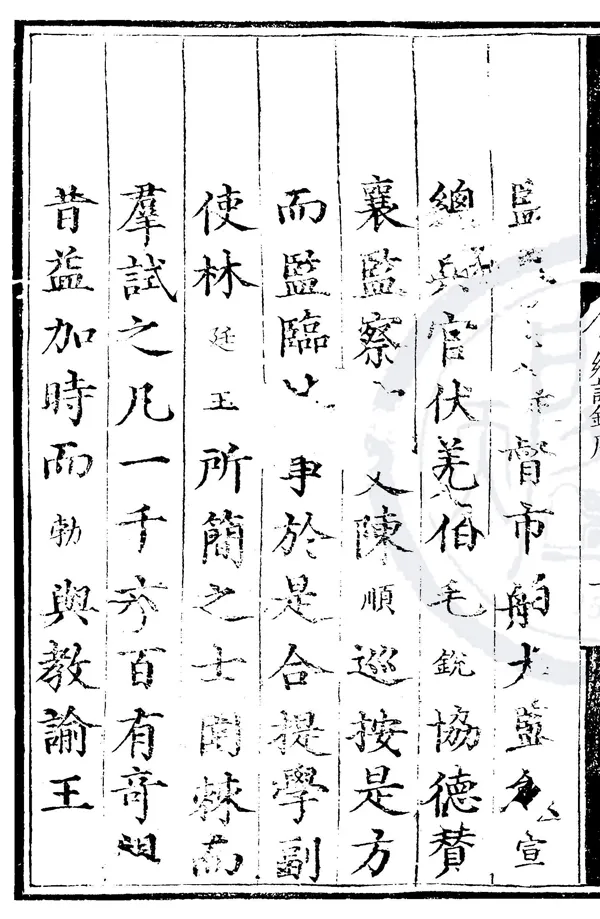 監督市舶太監宣
總兵官伏羌伯毛銳協德贊
襄監察陳順巡按是方
而監臨事於是合提學副
使林廷玉所簡之士闈棘而
羣試之凡一千百有奇
昔益加時而勃與教諭王